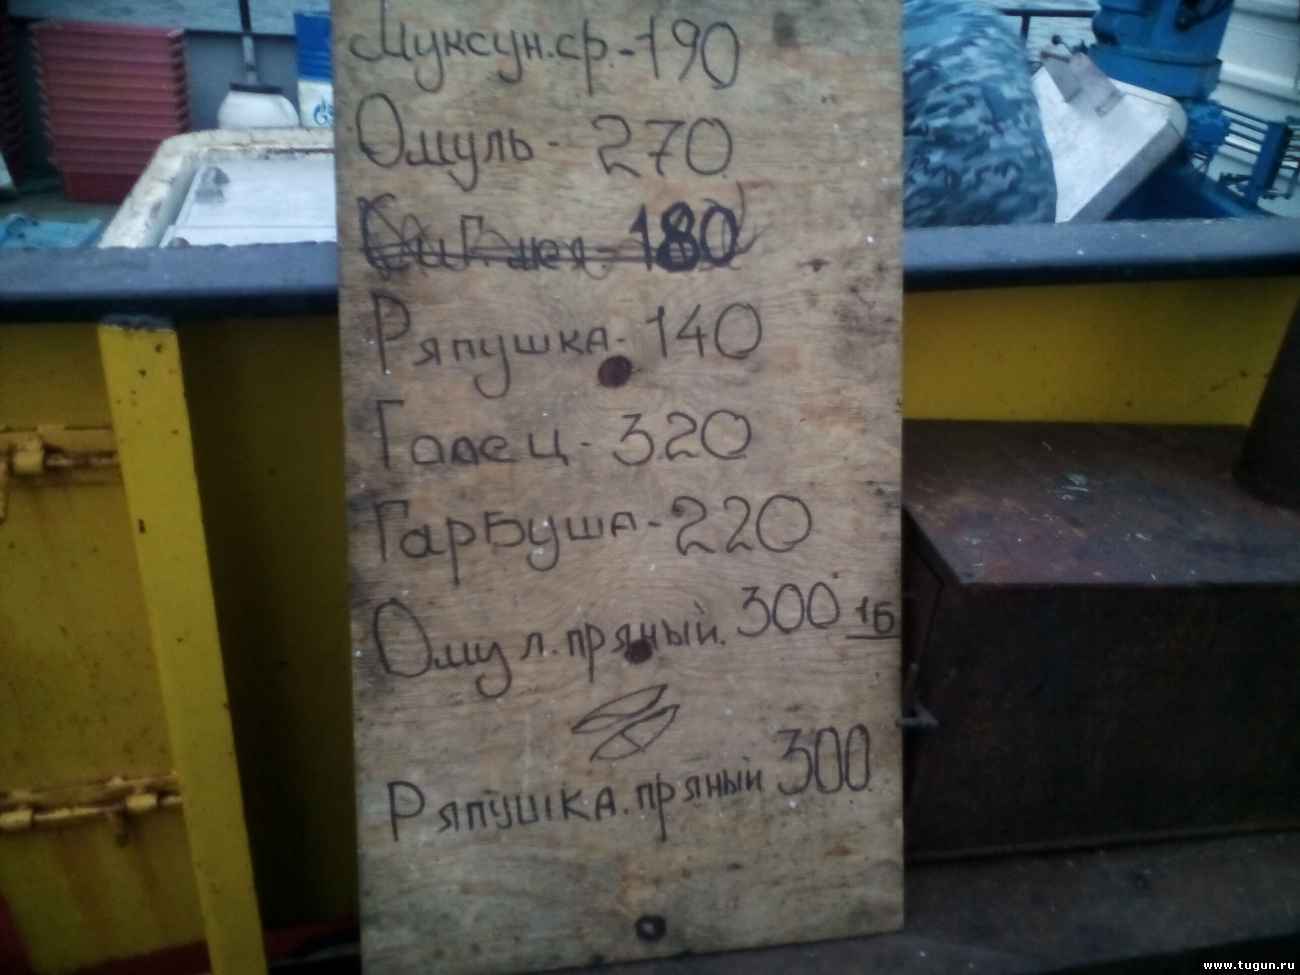 Муксун.ср.-190
Омуль- 270
180
Ряпушка- 140
Голец- 320
Гарбуша-220
Омул.пряный. 300 1б
Ряпушка.пряный 300
www.tugun.ru